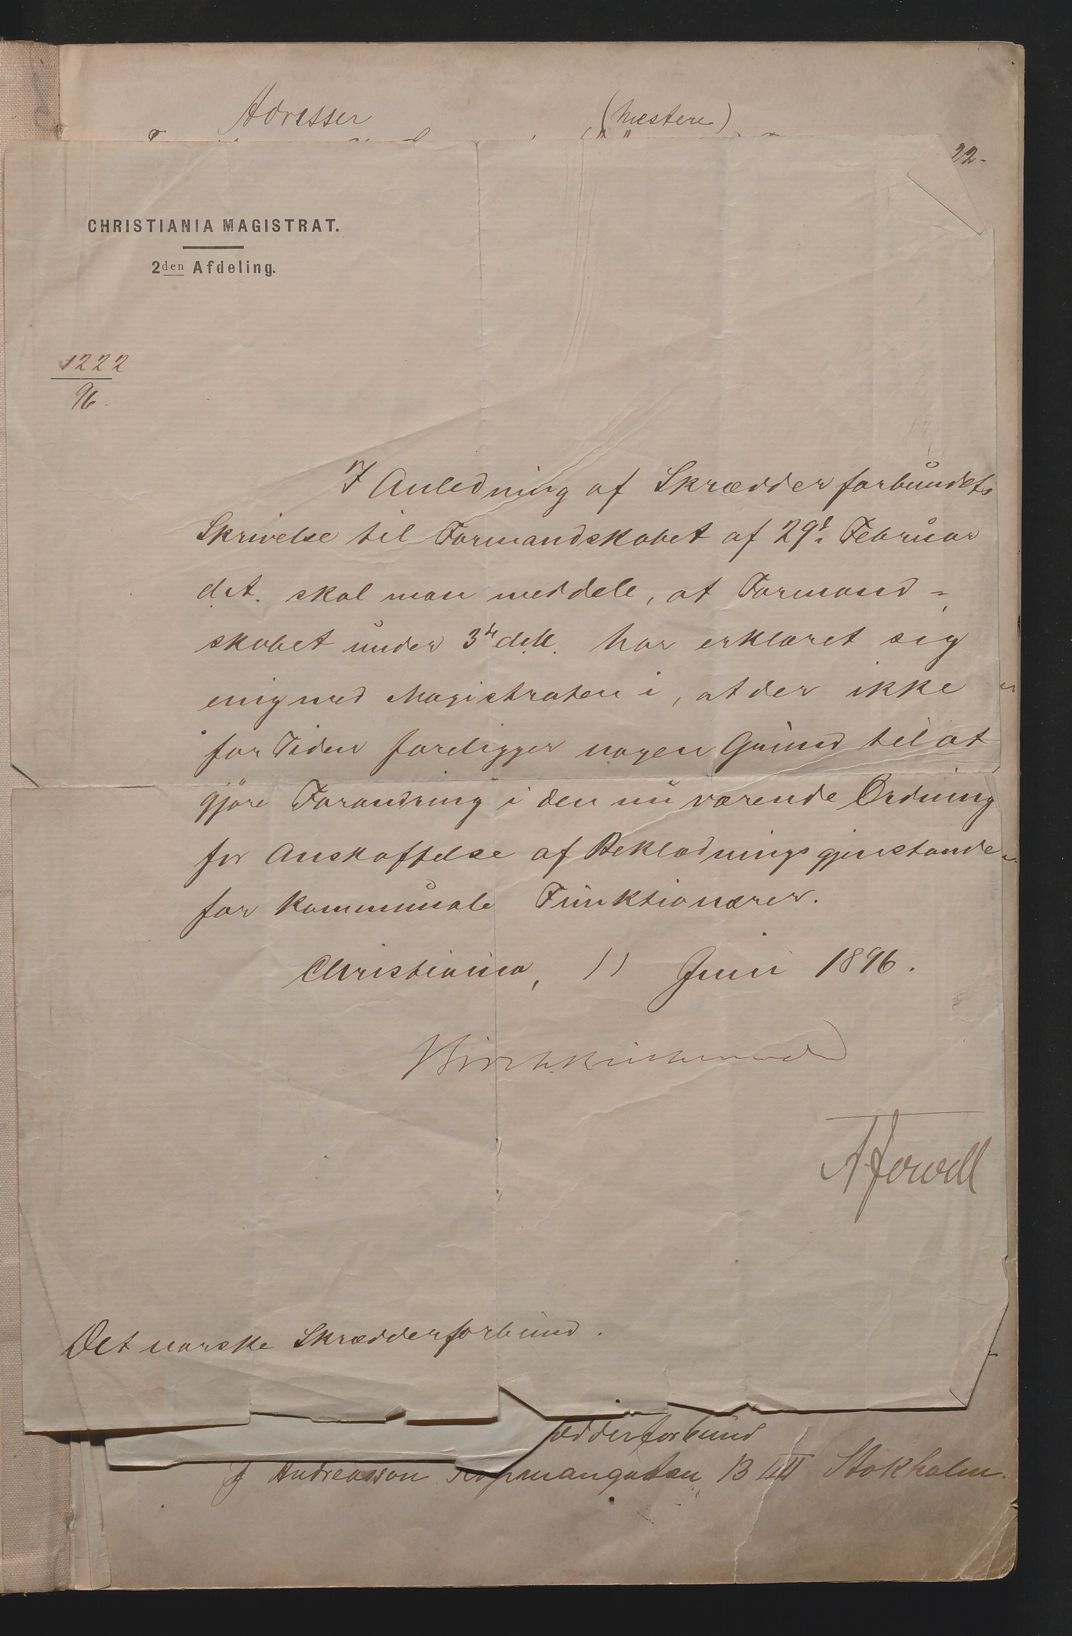 Adresser (Mestere)
22.
CHRISTIANIA MAGISTRAT.
2den Afdeling.
1222
96.
I Anledning af Skrædderforbundets
Skrivelse til Formandskabet af 29d. Februar
d.A. skal man meddele, at Formand-
skabet under 3d. ds. har erklæret sig
enig med Magistraten i, at der ikke
for Tiden foreligger nogen Grund til at
gjøre Forandring i den nu værende Ordning
for Anskaffelse af Beklædningsgjenstande
for kommunale Funktionærer.
Christiania, 11 Juni 1896.
Det norske Skrædderforbund.
ædderforbund
J Andreasson Kopmangatan 13 III Stokholm.